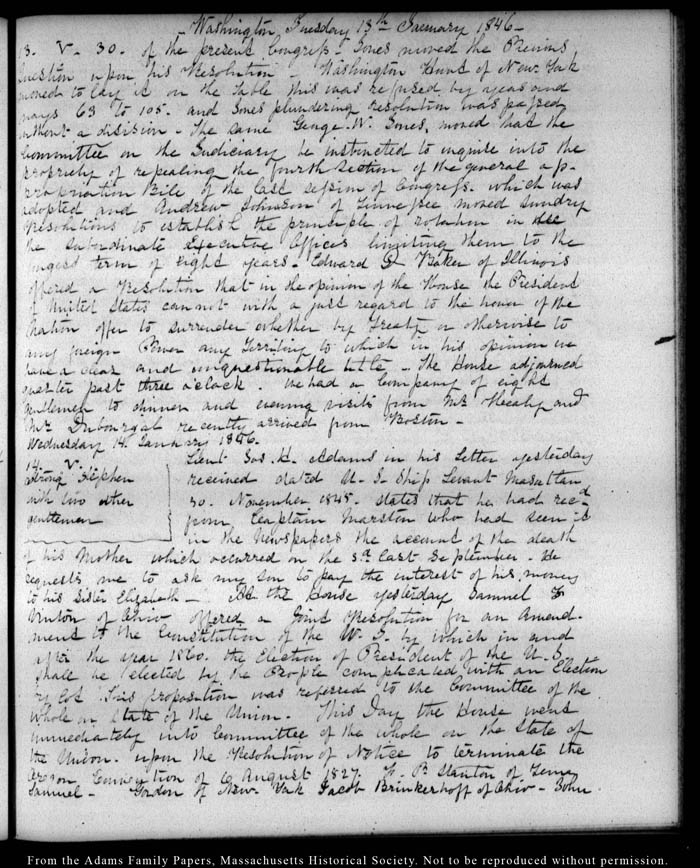 - Washington, Tuesday 13th January 1846 -
3. V. 30. of the present Congress - Jones moved the Previous
Question upon his Resolution - Washington Hunt of New York
moved to lay it on the table this was refused by yeas and
nays 63 to 105. and Jones plundering resolution was passed
without a division - The same George W. Jones, moved that the
Committee on the Judiciary be instructed to inquire into the
propriety of repealing the fourth section of the general ap-
propriation Bill of the last session of Congress. which was
adopted and Andrew Johnson of Tennessee moved sundry
Resolutions to establish the principle of rotation in
the subordinate Executive Offices limiting them to the
longest term of Eight years - Edward D Baker of Illinois
offered a Resolution that in the opinion of the House the President
of United States cannot with a just regard to the honor of the
Nation offer to surrender whether by Treaty or otherwise to
any foreign Power any Territory to which in his opinion we
have a clear and unquestionable title - The House adjourned
quarter past three o'clock. We had a Company of eight
Gentlemen to dinner and evening visits from Mr Healy and
Mr Dubourgal recently arrived from Boston -
Wednesday 14. January 1846.
14. V.
Strong Stephen
with two other
gentlemen
Lieut Jos. H. Adams in his Letter yesterday
received dated U. S. Ship Levant Mazatlan
30. November 1845. states that he had recd
from Captain Marston who had seen it
in the Newspapers the account of the death
of his Mother which occurred on the 3d last September. He
requests me to ask my son to pay the interest of his money
to his Sister Elizabeth - At the House yesterday Samuel F
Vinton of Ohio offered a Joint Resolution for an Amend-
ment to the Constitution of the U. S. by which in and
after the year 1860. the Election of President of the U. S.
shall be elected by the People complicated with an Election
by lot This proposition was referred to the Committee of the
whole on State of the Union. This Day the House went
immediately into Committee of the whole on the State of
the Union. upon the Resolution of Notice to terminate the
Oregon Convention of 6 August 1827. F. P. Stanton of Tenne
Samuel - Gordon of New York Jacob Brinkerhoff of Ohio - John
From the Adams Family Papers, Massachusetts Historical Society. Not to be reproduced without permission.